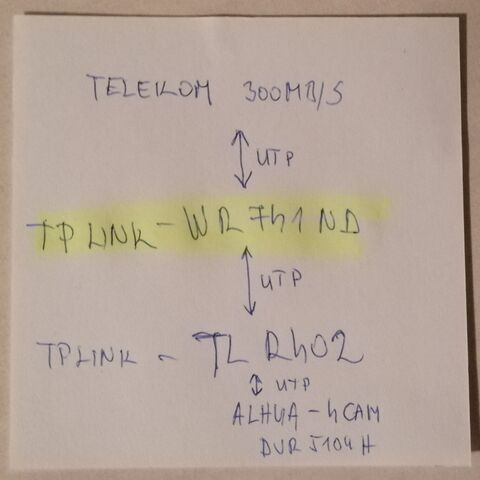 TELEKOM 300MB/S
UTP
TPLINK - WR741ND
UTP
TPLINK - TL R402
UTP
ALHUA - 4CAM
DVR 5104H